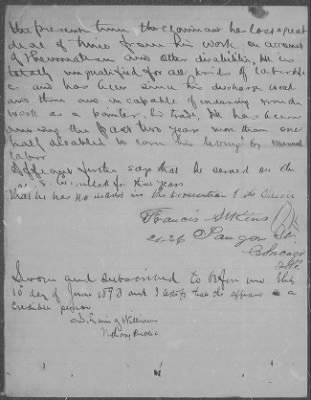 the present time the claimant has lost a great
deal of time from his work on account
of Rheumatism and other disabilities, He is
totally unqualified for all kinds of labor
and has been since his discharge
and then and incapable of enduring much
work as a painter, his trade, He has been
during the past two years more than one
half disabled to earn his living by manual
labor
Affiant further says that he served on the
for three years
that he has no interest in the prosecution of the Claim
Francis
2626
Chicago
Ills
Sworn and subscribed to before me this
10th day of June 1893 and I certify that the affiant is a
credible person
Williams
Notary Public